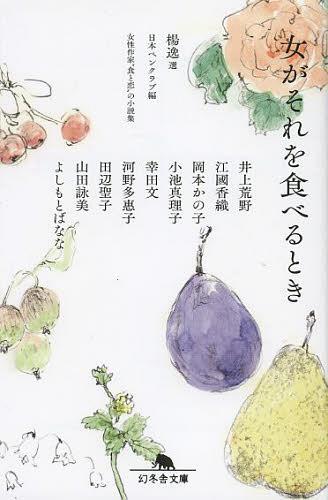 女がそれを食べるとき
楊逸 選
日本ペンクラブ編
女性作家“食と恋”の小説集
井上荒野
江國香織
岡本かの子
小池真理子
幸田文
河野多惠子
田辺聖子
山田詠美
よしもとばなな
幻冬舎文庫